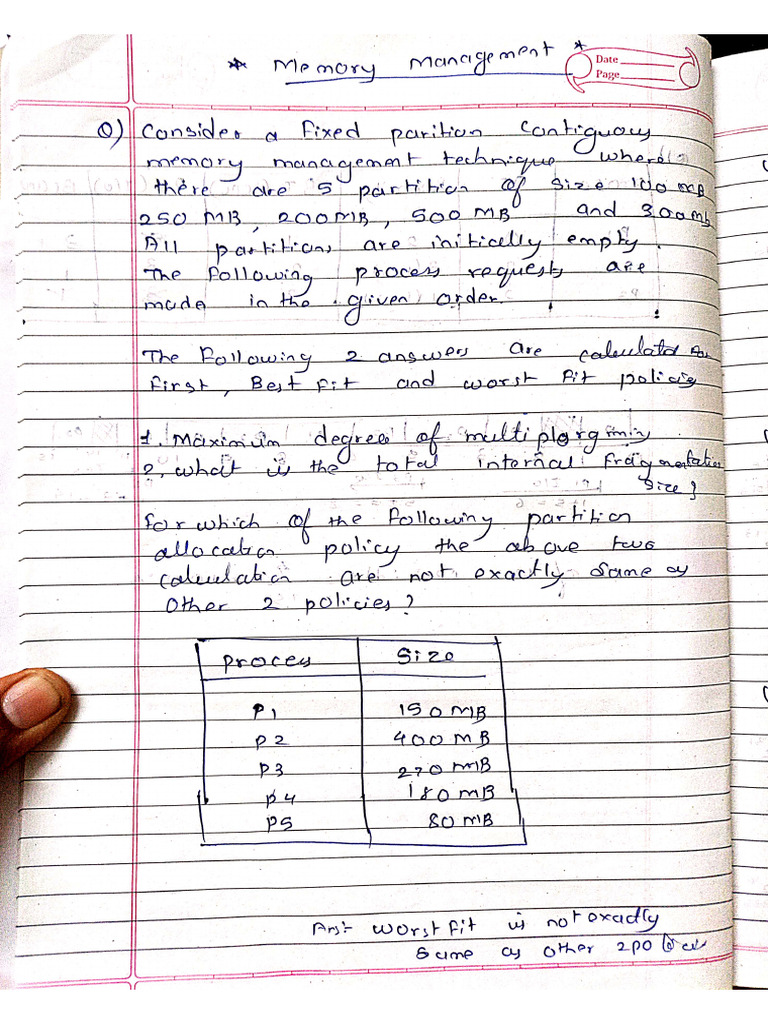 * Memory Management *
Date
Page
Q) Consider a fixed parition contiguous
memory management technique where
there are 5 partition of size 100 MB
250 MB, 200MB, 500 MB and 300mb
All partitions are initically empty.
The following process requests are
made in the given order.
The Following 2 answers are calculated for
first, Best fit and worst fit policies
1. Maximum degree of multiplorgmin
2, what is the total internal fragmentation
size?
for which of the following partition
allocation policy the above two
calculation are not exactly same as
other 2 policies?
Proces Size
P1 150 MB
P2 400 MB
P3 270 MB
P4 180 MB
P5 80 MB
Ans:- worst fit is not exactly
same as other 2